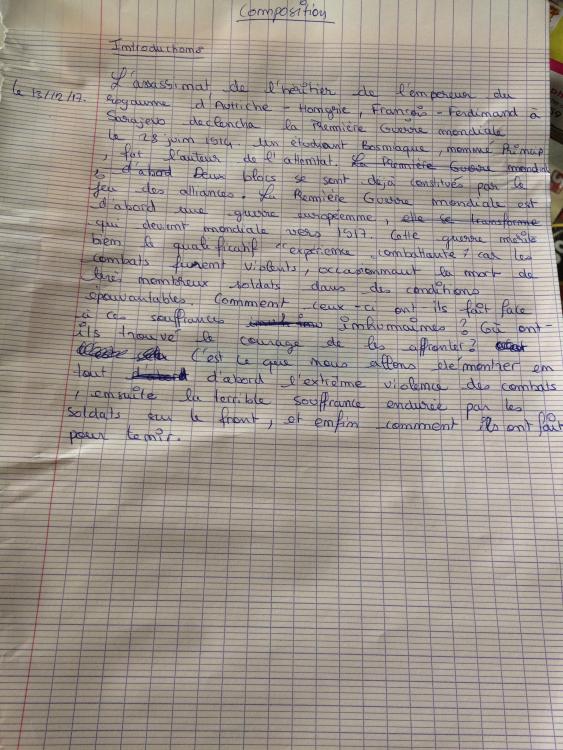 Composition
Introductions
le 13/12/17.
L'assassinat de l'héritier de l'empereur du
royaume d'Autriche-Hongrie, François-Ferdinand à
Sarajevo déclencha la Première Guerre mondiale
le 28 juin 1914. Un étudiant Bosniaque, nommé Prinup
, fut l'auteur de l'attentat. La Première Guerre mondial
, d'abord Deux blocs se sont déjà constitués par le
jeu des alliances. La Première Guerre mondiale est
d'abord une guerre européenne, elle se transforme
qui devint mondiale vers 1917. Cette guerre mérite
bien le qualificatif "d'expérience combattante" car les
combats furent violents, occasionnant la mort de
très nombreux soldats dans des conditions
épouvantables. Comment ceux-ci ont ils fait face
à ces souffrances inhumaines? Où ont-
ils trouvé le courage de les affronter?
C'est ce que nous allons démontrer en
tout d'abord d'abord l'extrême violence des combats
, ensuite la terrible souffrance endurée par les
soldats sur le front, et enfin comment ils ont fait
pour tenir.